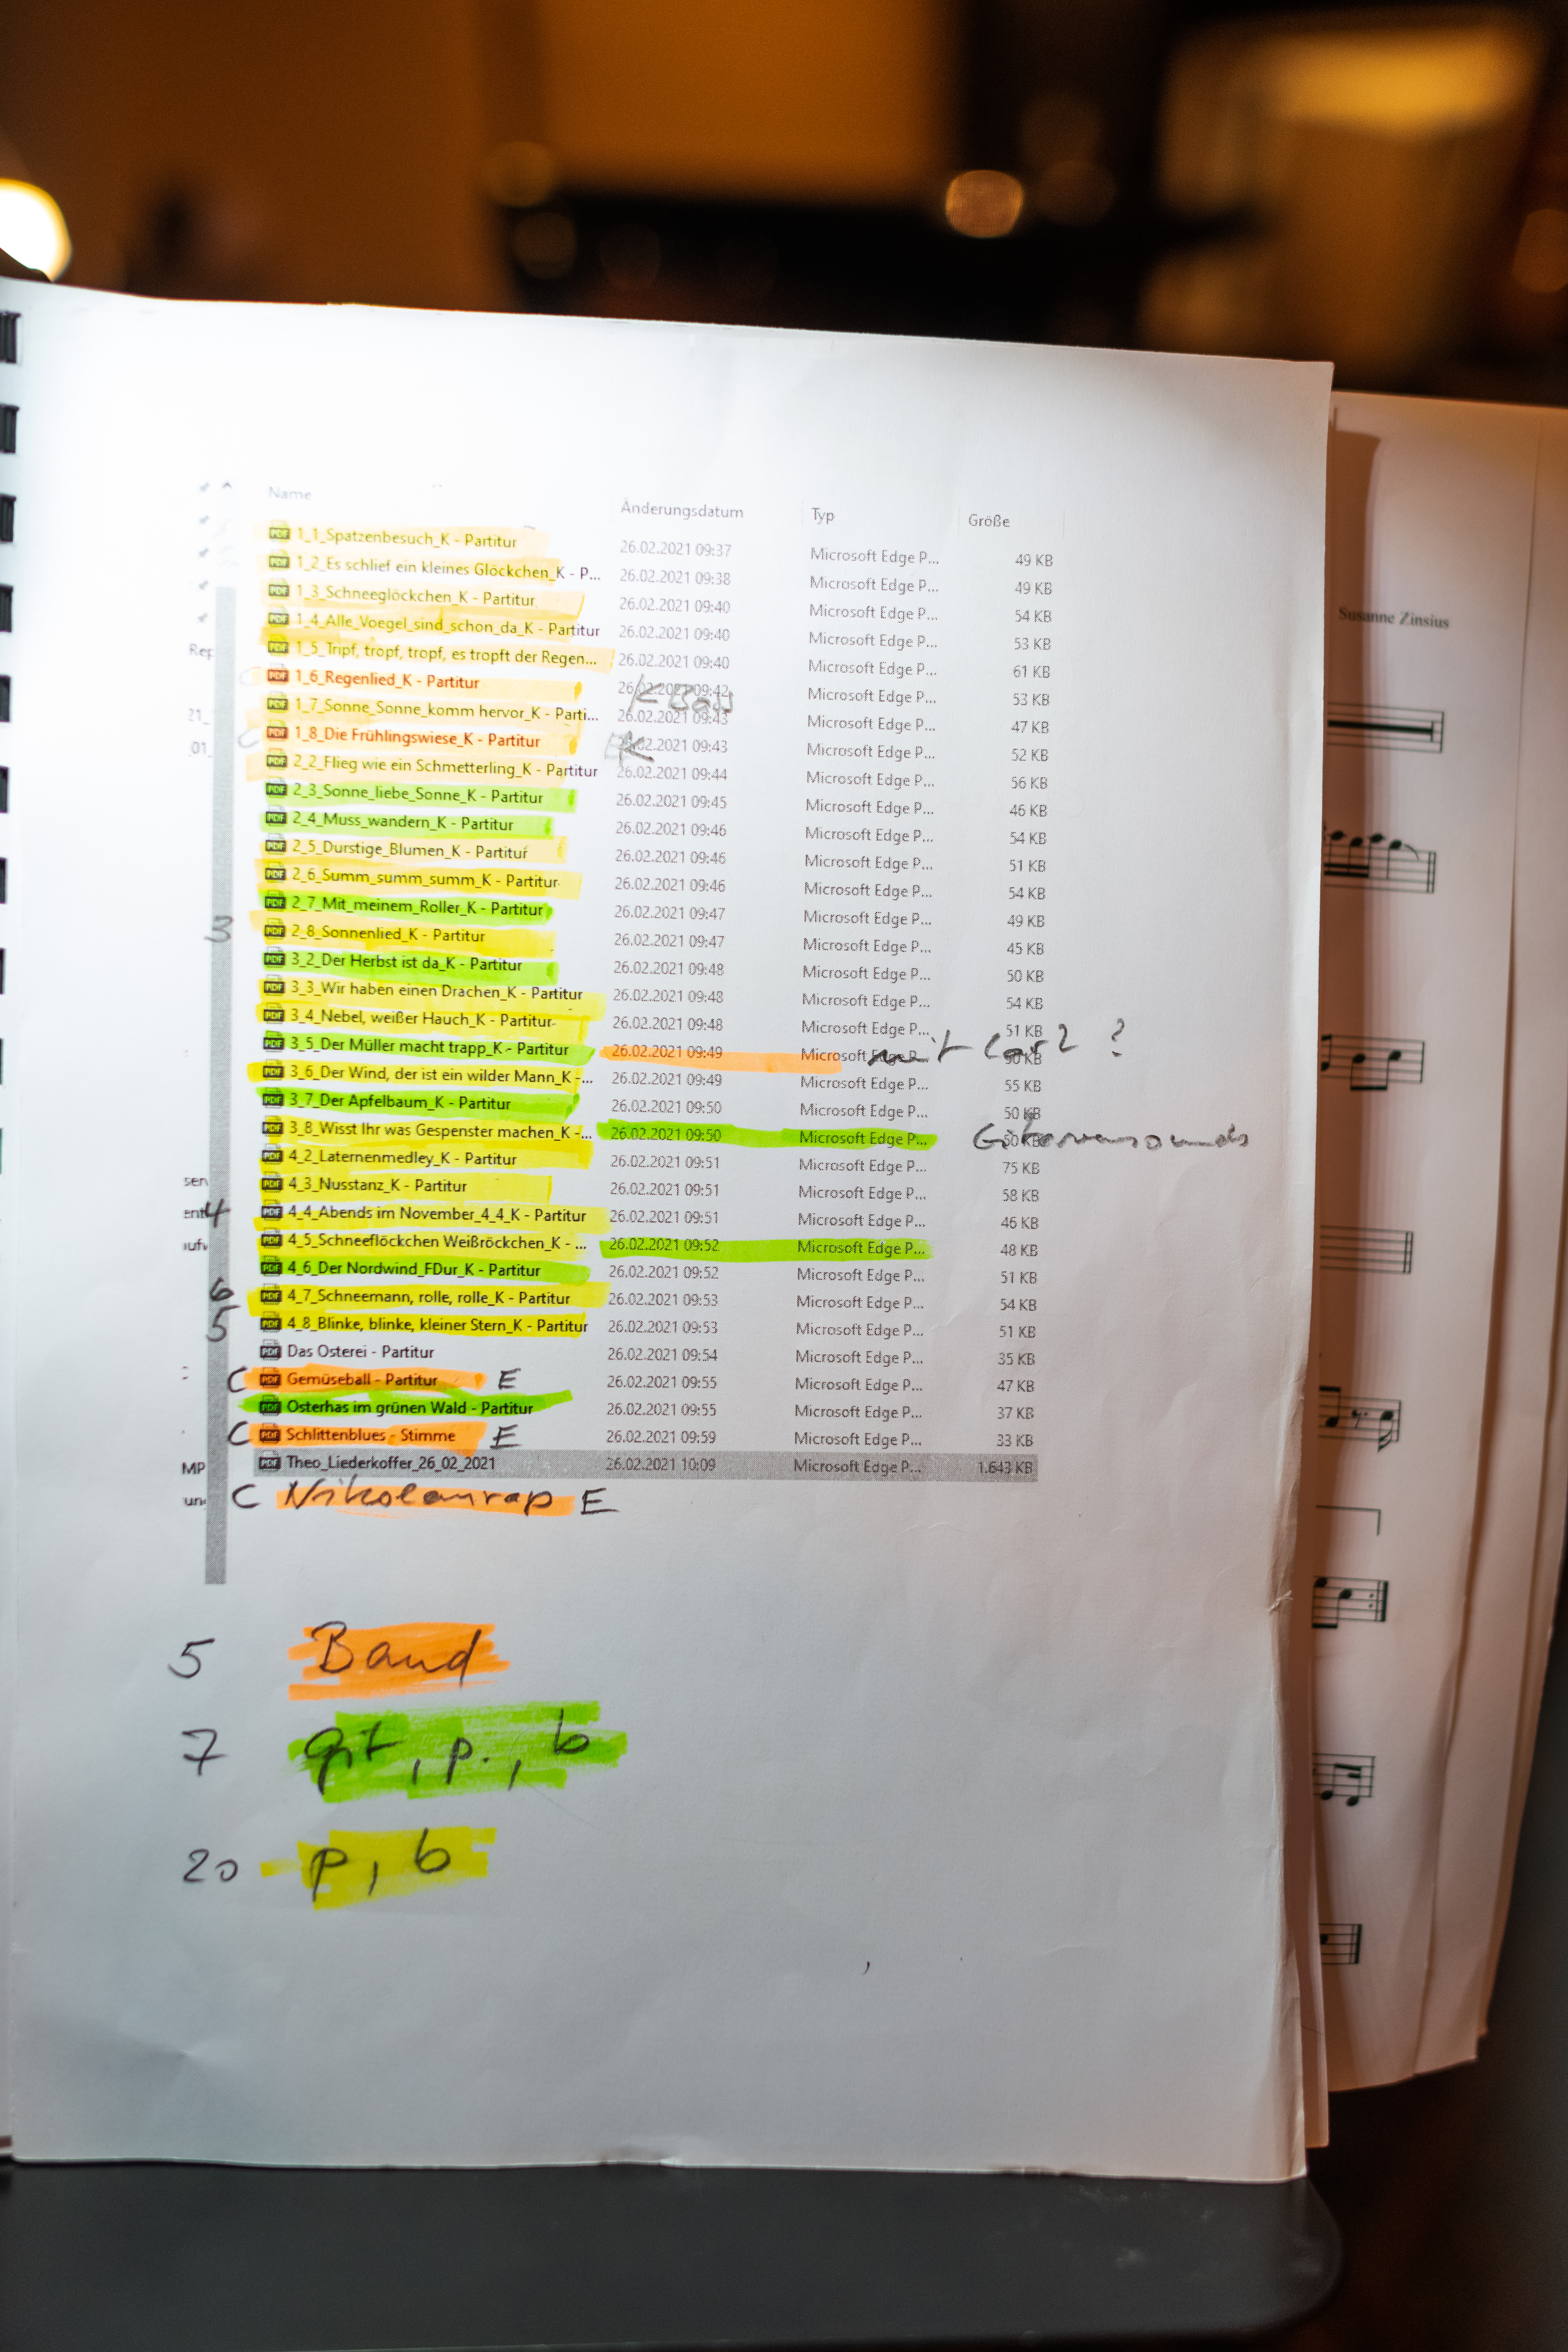 Name Änderungsdatum Typ Größe
1_1_Spatzenbesuch_K - Partitur 26.02.2021 09:37 Microsoft Edge P... 49 KB
1_2_Es schlief ein kleines Glöckchen_K - P... 26.02.2021 09:38 Microsoft Edge P... 49 KB
1_3_Schneeglöckchen_K - Partitur 26.02.2021 09:40 Microsoft Edge P... 54 KB
1_4_Alle_Voegel_sind_schon_da_K - Partitur 26.02.2021 09:40 Microsoft Edge P... 53 KB
Susanne Zinsius
Rep 1_5_Tripf, tropf, tropf, es tropft der Regen... 26.02.2021 09:40 Microsoft Edge P... 61 KB
1_6_Regenlied_K - Partitur 26.02.2021 09:42 K Bass Microsoft Edge P... 53 KB
21_ 1_7_Sonne_Sonne_komm hervor_K - Parti... 26.02.2021 09:43 Microsoft Edge P... 47 KB
01_ 1_8_Die Frühlingswiese_K - Partitur 26.02.2021 09:43 K Microsoft Edge P... 52 KB
2_2_Flieg wie ein Schmetterling_K - Partitur 26.02.2021 09:44 Microsoft Edge P... 56 KB
2_3_Sonne_liebe_Sonne_K - Partitur 26.02.2021 09:45 Microsoft Edge P... 46 KB
2_4_Muss_wandern_K - Partitur 26.02.2021 09:46 Microsoft Edge P... 54 KB
2_5_Durstige_Blumen_K - Partitur 26.02.2021 09:46 Microsoft Edge P... 51 KB
2_6_Summ_summ_summ_K - Partitur 26.02.2021 09:46 Microsoft Edge P... 54 KB
2_7_Mit_meinem_Roller_K - Partitur 26.02.2021 09:47 Microsoft Edge P... 49 KB
3 2_8_Sonnenlied_K - Partitur 26.02.2021 09:47 Microsoft Edge P... 45 KB
3_2_Der Herbst ist da_K - Partitur 26.02.2021 09:48 Microsoft Edge P... 50 KB
3_3_Wir haben einen Drachen_K - Partitur 26.02.2021 09:48 Microsoft Edge P... 54 KB
3_4_Nebel, weißer Hauch_K - Partitur 26.02.2021 09:48 Microsoft Edge P... 51 KB
3_5_Der Müller macht trapp_K - Partitur 26.02.2021 09:49 Microsoft Edge P... 50 KB mit ?
3_6_Der Wind, der ist ein wilder Mann_K -... 26.02.2021 09:49 Microsoft Edge P... 55 KB
3_7_Der Apfelbaum_K - Partitur 26.02.2021 09:50 Microsoft Edge P... 50 KB
3_8_Wisst Ihr was Gespenster machen_K -... 26.02.2021 09:50 Microsoft Edge P... 50 KB Gitarrensounds
4_2_Laternenmedley_K - Partitur 26.02.2021 09:51 Microsoft Edge P... 75 KB
sen 4_3_Nusstanz_K - Partitur 26.02.2021 09:51 Microsoft Edge P... 58 KB
ent 4 4_4_Abends im November_4_4_K - Partitur 26.02.2021 09:51 Microsoft Edge P... 46 KB
aufv 4_5_Schneeflöckchen Weißröckchen_K - ... 26.02.2021 09:52 Microsoft Edge P... 48 KB
4_6_Der Nordwind_FDur_K - Partitur 26.02.2021 09:52 Microsoft Edge P... 51 KB
6 4_7_Schneemann, rolle, rolle_K - Partitur 26.02.2021 09:53 Microsoft Edge P... 54 KB
5 4_8_Blinke, blinke, kleiner Stern_K - Partitur 26.02.2021 09:53 Microsoft Edge P... 51 KB
Das Osterei - Partitur 26.02.2021 09:54 Microsoft Edge P... 35 KB
C Gemüseball - Partitur E 26.02.2021 09:55 Microsoft Edge P... 47 KB
Osterhas im grünen Wald - Partitur 26.02.2021 09:55 Microsoft Edge P... 37 KB
C Schlittenblues - Stimme E 26.02.2021 09:59 Microsoft Edge P... 33 KB
MP Theo_Liederkoffer_26_02_2021 26.02.2021 10:09 Microsoft Edge P... 1.643 KB
un C Nikolausrap E
5 Band
7 git, p., b
20 p, b